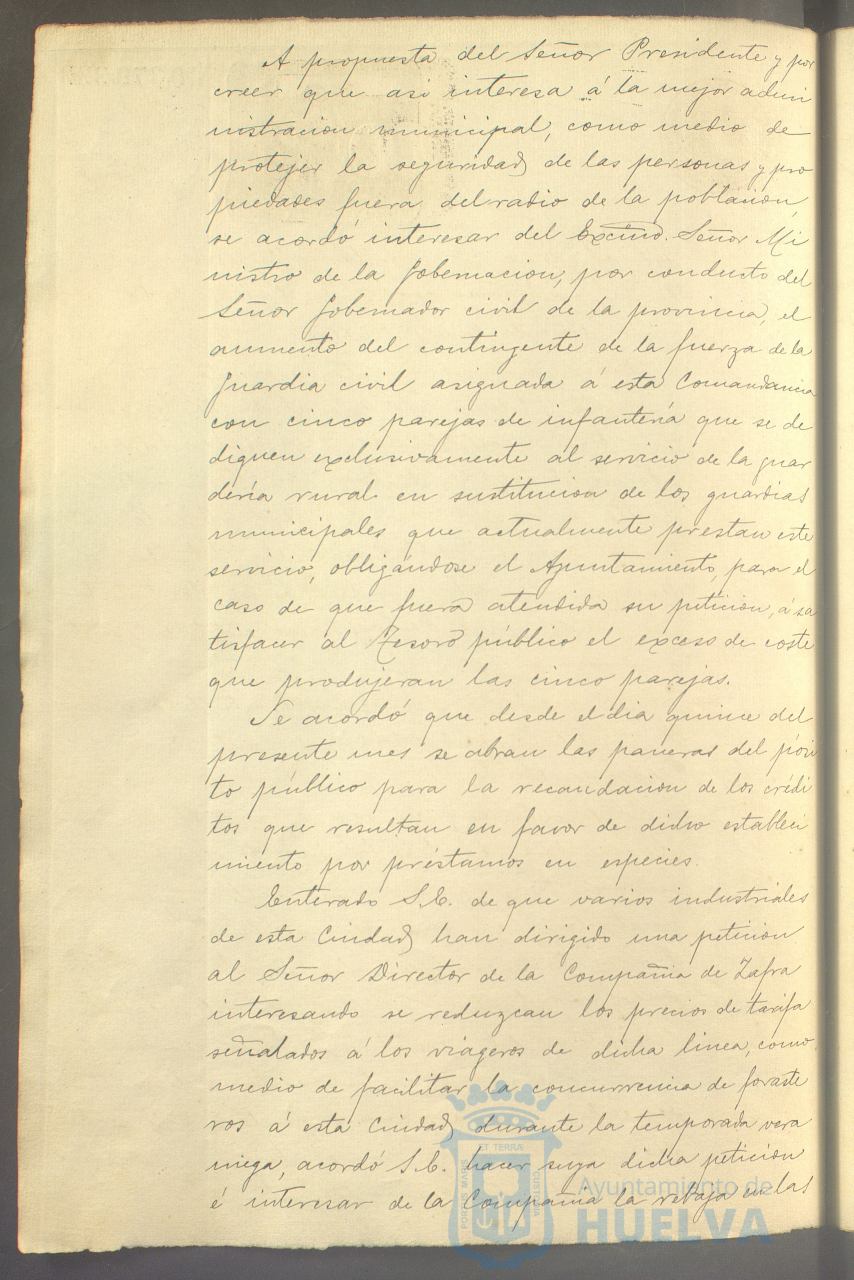 A propuesta del Señor Presidente y por
creer que asi interesa á la mejor admi
nistracion municipal, como medio de
protejer la seguridad de las personas y pro
piedades fuera del radio de la poblacion,
se acordó interesar del Excmo. Señor Mi
nistro de la Gobernacion, por conducto del
Señor Gobernador civil de la provincia, el
aumento del contingente de la fuerza de la
Guardia civil asignada á esta Comandancia
con cinco parejas de infantería que se de
diquen exclusivamente al servicio de la guar
dería rural en sustitucion de los guardias
municipales que actualmente prestan este
servicio, obligándose el Ayuntamiento para el
caso de que fuera atendida su peticion, á sa
tisfacer al Tesoro público el exceso de coste
que produjeran las cinco parejas.
Se acordó que desde el dia quince del
presente mes se abran las paneras del pósi
to público para la recaudacion de los crédi
tos que resultan en favor de dicho estableci
miento por préstamos en especies.
Enterado S.E. de que varios industriales
de esta Ciudad han dirigido una peticion
al Señor Director de la Compañia de Zafra
interesando se reduzcan los precios de tarifa
señalados á los viageros de dicha linea, como
medio de facilitar la concurrencia de foraste
ros á esta Ciudad durante la temporada vera
niega, acordó S.E. hacer suya dicha peticion
é interesar de la Compañia la rebaja en las
PORTUS MARIS
ET TERRÆ
CUSTODIA
Ayuntamiento de
HUELVA